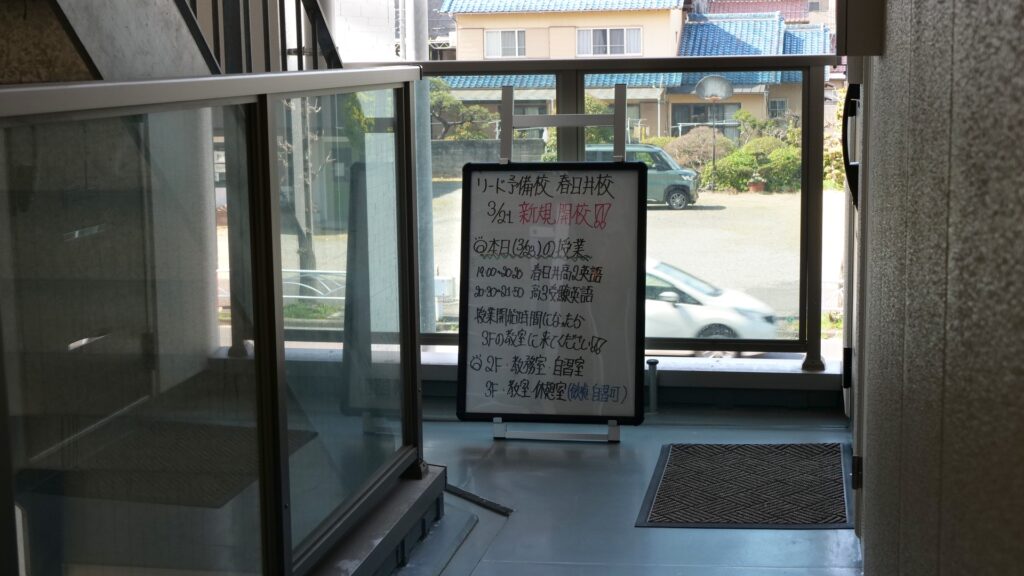 リード予備校 春日井校
3/21 新規開校!!
◎本日(3/22)の授業
19:00~20:20 春日井高2英語
20:30~21:50 高3受験英語
授業開始時間になったら
3Fの教室に来てください!!
◎2F・教務室 自習室
3F・教室 休憩室( 自習可)